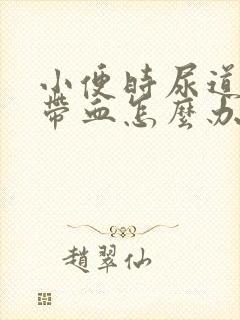 小便時尿道
帶血怎麼办
趙翠仙